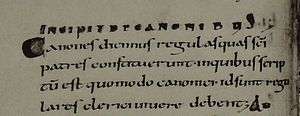 INCIPIT DE CANONIBUS
Canones dicimus regulas quas sc̄i
patres constituerunt inquibus scrip
tū est quomodo canonici id sunt regu
lares clerici uiuere debent